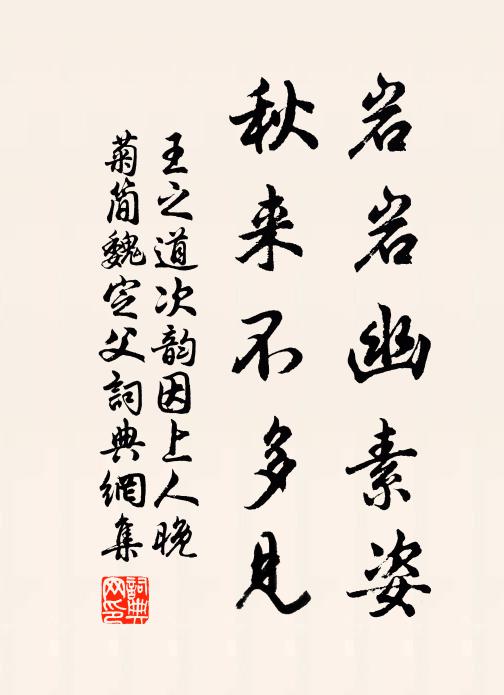 岩岩幽素姿
秋来不多見
王之道次韵因上人晚
菊简魏定父詞典網集
詞典网印